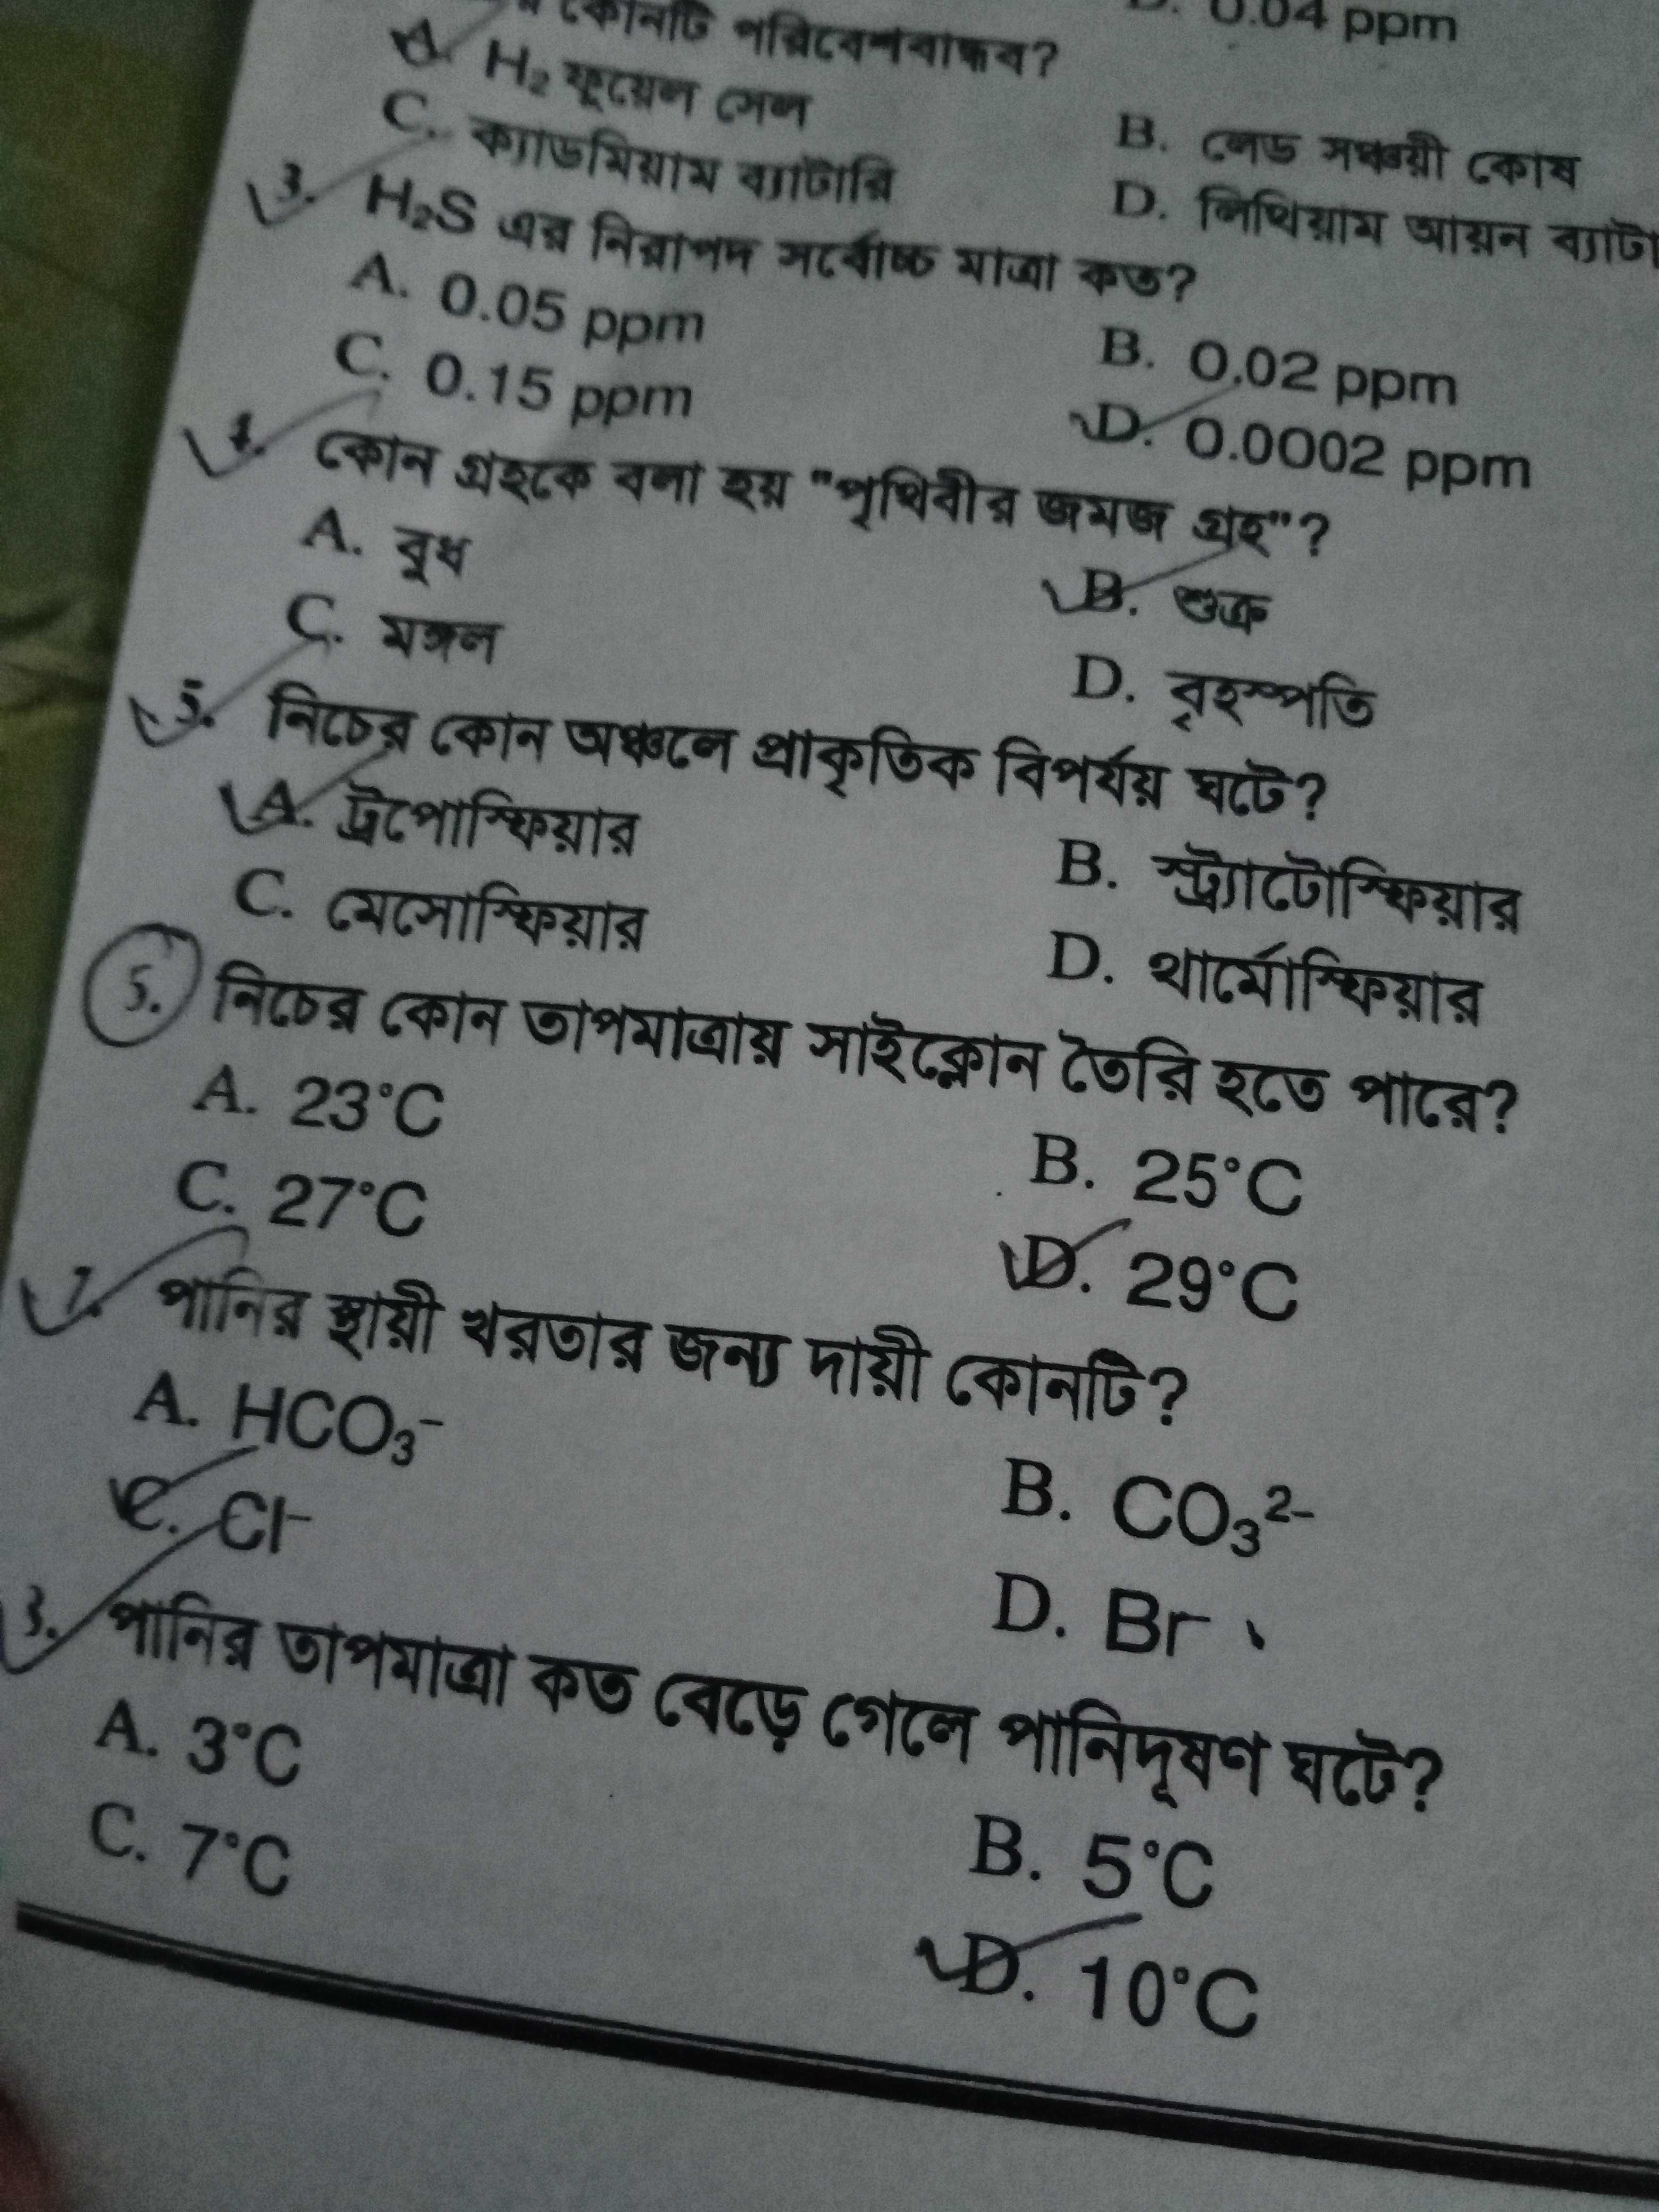 কোনটি পরিবেশবান্ধব?
0.04 ppm
A. H₂ ফুয়েল সেল
B. লেড সঞ্চয়ী কোষ
C. ক্যাডমিয়াম ব্যাটারি
D. লিথিয়াম আয়ন ব্যাটা
3. H₂S এর নিরাপদ সর্বোচ্চ মাত্রা কত?
A. 0.05 ppm
B. 0.02 ppm
C. 0.15 ppm
D. 0.0002 ppm
4. কোন গ্রহকে বলা হয় "পৃথিবীর জমজ গ্রহ"?
A. বুধ
B. শুক্র
C. মঙ্গল
D. বৃহস্পতি
5. নিচের কোন অঞ্চলে প্রাকৃতিক বিপর্যয় ঘটে?
A. ট্রপোস্ফিয়ার
B. স্ট্র্যাটোস্ফিয়ার
C. মেসোস্ফিয়ার
D. থার্মোস্ফিয়ার
নিচের কোন তাপমাত্রায় সাইক্লোন তৈরি হতে পারে?
A. 23°C
B. 25°C
C. 27°C
D. 29°C
7. পানির স্থায়ী খরতার জন্য দায়ী কোনটি?
A. HCO₃⁻
B. CO₃²⁻
C. Cl⁻
D. Br⁻
পানির তাপমাত্রা কত বেড়ে গেলে পানিদূষণ ঘটে?
A. 3°C
B. 5°C
C. 7°C
D. 10°C